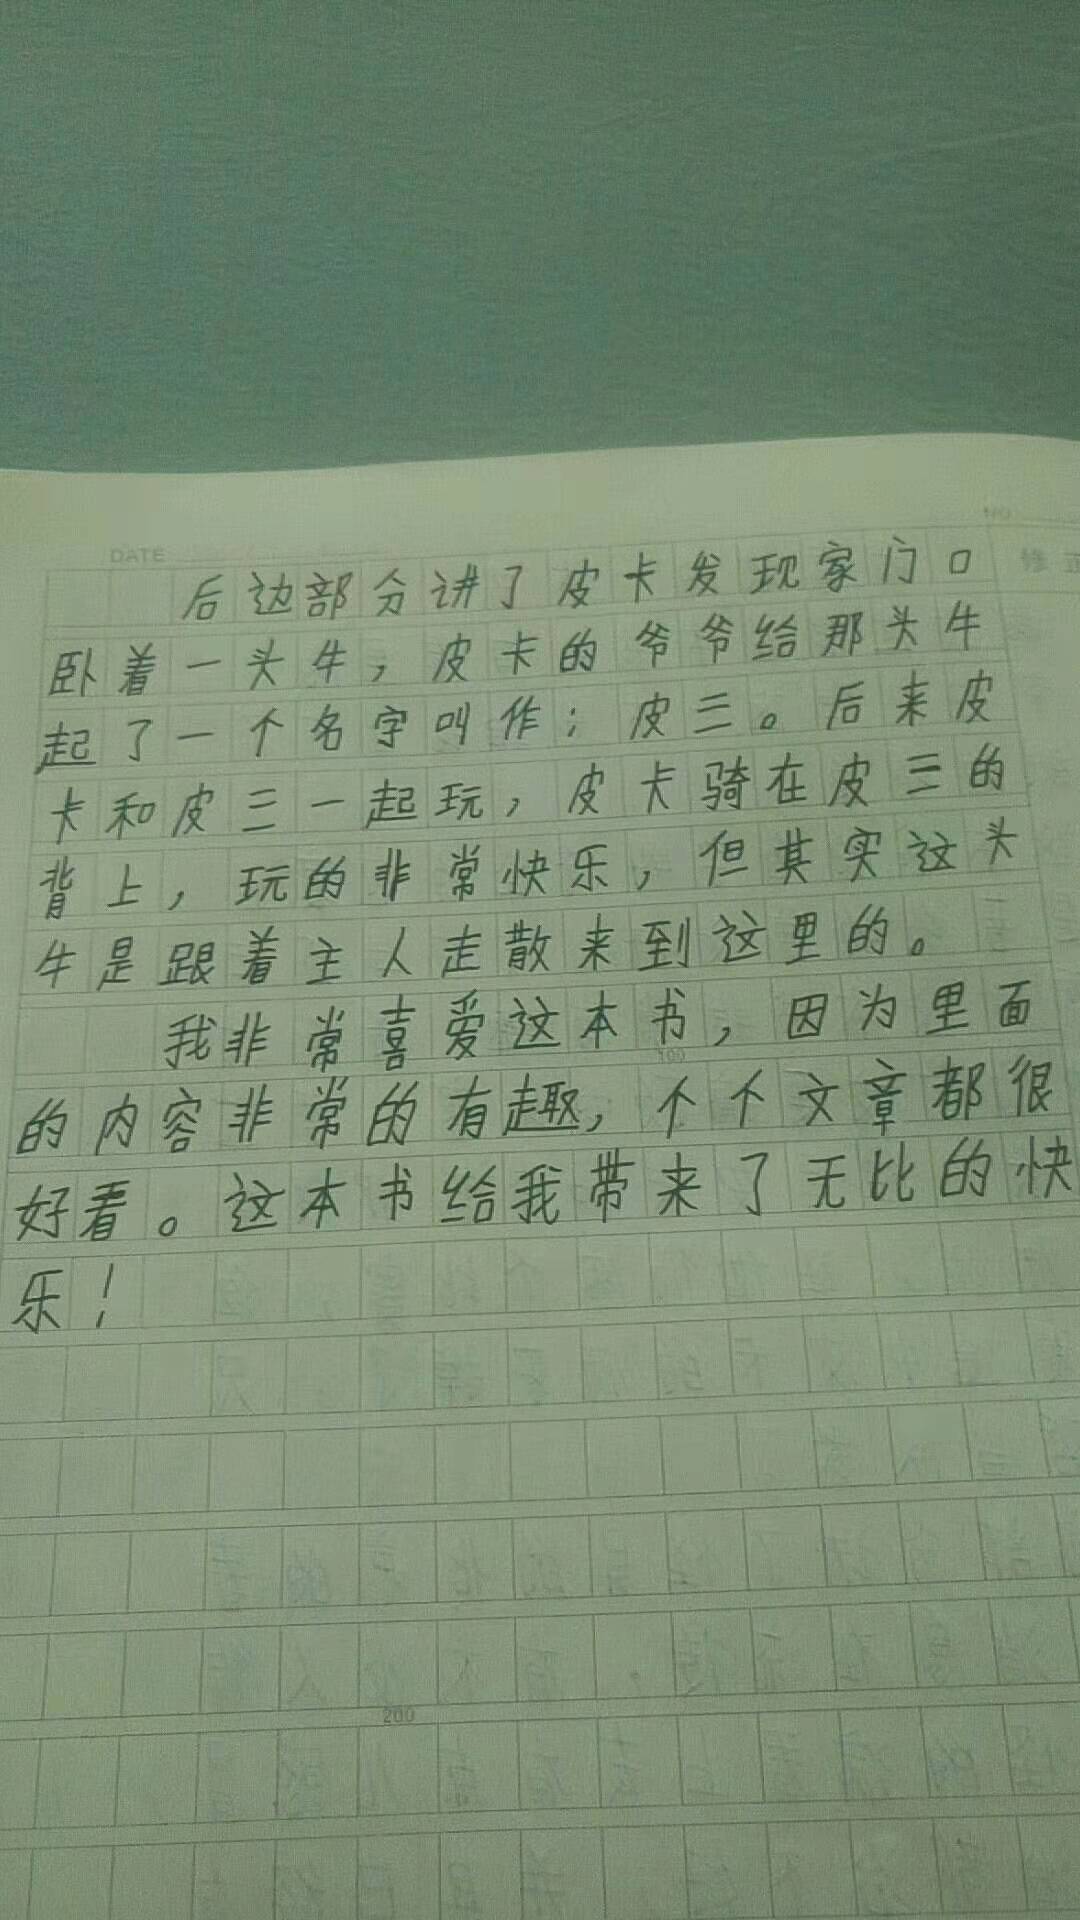 DATE
NO
后边部分讲了皮卡发现家门口
卧着一头牛，皮卡的爷爷给那头牛
起了一个名字叫作；皮三。后来皮
卡和皮三一起玩，皮卡骑在皮三的
背上，玩的非常快乐，但其实这头
牛是跟着主人走散来到这里的。
我非常喜爱这本书，因为里面
100
的内容非常的有趣，个个文章都很
好看。这本书给我带来了无比的快
乐！
200